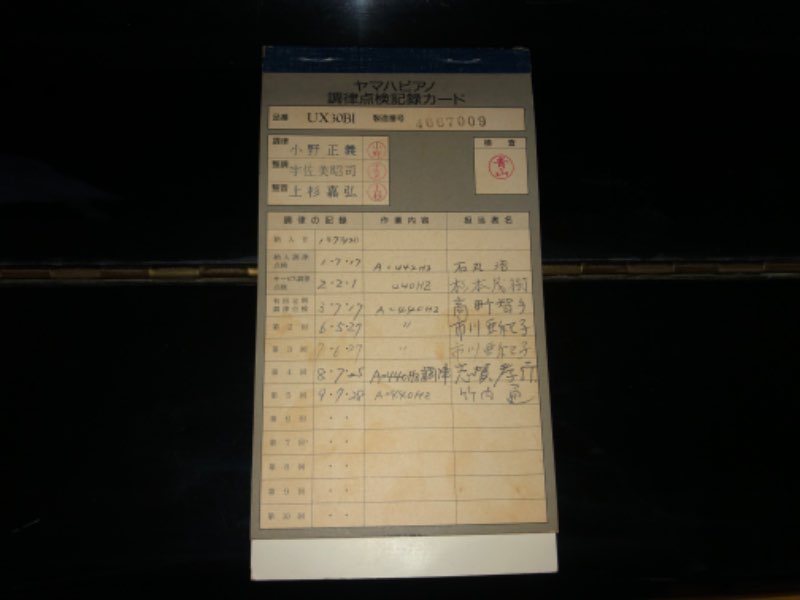 ヤマハピアノ
調律点検記録カード
品番 UX30Bl 製造番号 4667009
調律 小野正義 小野
整調 宇佐美昭司
整音 上杉嘉弘 上杉
検査
青山
調律の記録 作業内容 担当者名
納入日
納入調律点検 1・7・17 A=442HZ
サービス調律点検 2・2・1 440HZ 杉本
初回定期調律点検 3・7・17 A=440HZ
第2回 6・5・27 〃 市川亜紀子
第3回 7・6・27 〃 市川亜紀子
第4回 8・7・25 A=440HZ調律 志賀
第5回 9・7・28 A=440HZ 竹内
第6回 ・・
第7回 ・・
第8回 ・・
第9回 ・・
第10回 ・・